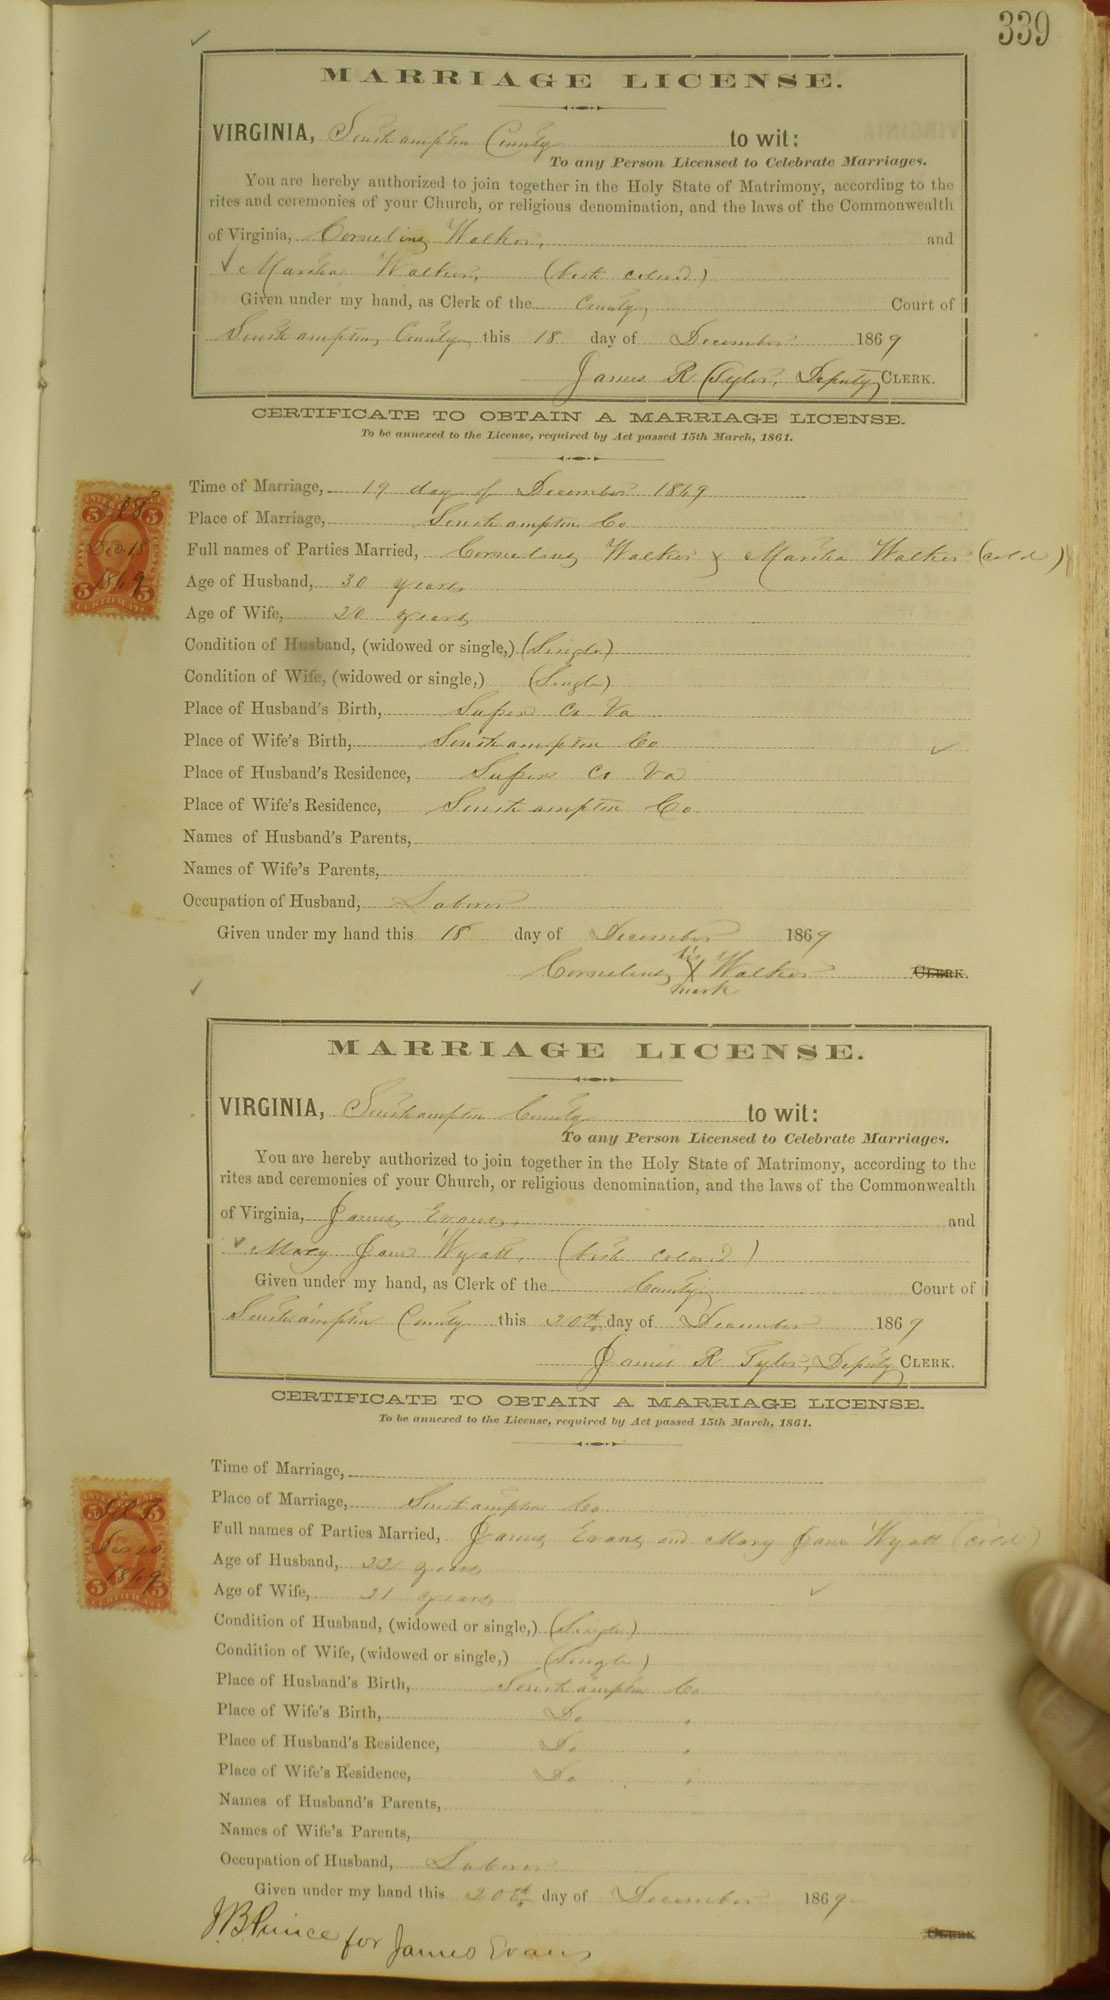 339
MARRIAGE LICENSE.
VIRGINIA, Southampton County to wit:
To any Person Licensed to Celebrate Marriages.
You are hereby authorized to join together in the Holy State of Matrimony, according to the
rites and ceremonies of your Church, or religious denomination, and the laws of the Commonwealth
of Virginia, Cornelius Walker, and
Martha Walker, (both colored)
Given under my hand, as Clerk of the County Court of
Southampton County this 18 day of December 1869
James R Tyler, Deputy CLERK.
CERTIFICATE TO OBTAIN A MARRIAGE LICENSE.
To be annexed to the License, required by Act passed 15th March, 1861.
Time of Marriage, 19 day of December 1869
Place of Marriage, Southampton Co
Full names of Parties Married, Cornelius Walker & Martha Walker (cold)
Age of Husband, 30 years
Age of Wife, 20 years
Condition of Husband, (widowed or single,) (Single)
Condition of Wife, (widowed or single,) (Single)
Place of Husband's Birth, Sussex Co Va
Place of Wife's Birth, Southampton Co
Place of Husband's Residence, Sussex Co Va
Place of Wife's Residence, Southampton Co
Names of Husband's Parents,
Names of Wife's Parents,
Occupation of Husband, Laborer
Given under my hand this 18 day of December 1869
his
Cornelius X Walker CLERK.
mark
5 5
Dec 18
1869
5 5
CERTIFICATE
MARRIAGE LICENSE.
VIRGINIA, Southampton County to wit:
To any Person Licensed to Celebrate Marriages.
You are hereby authorized to join together in the Holy State of Matrimony, according to the
rites and ceremonies of your Church, or religious denomination, and the laws of the Commonwealth
of Virginia, James Evans, and
Mary Jane Wyatt, (both colored)
Given under my hand, as Clerk of the County Court of
Southampton County this 20th day of December 1869
James R Tyler, Deputy CLERK.
CERTIFICATE TO OBTAIN A MARRIAGE LICENSE.
To be annexed to the License, required by Act passed 15th March, 1861.
Time of Marriage,
Place of Marriage, Southampton Co
Full names of Parties Married, James Evans and Mary Jane Wyatt (cold)
Age of Husband, 22 years
Age of Wife, 21 years
Condition of Husband, (widowed or single,) (Single)
Condition of Wife, (widowed or single,) (Single)
Place of Husband's Birth, Southampton Co
Place of Wife's Birth, Do
Place of Husband's Residence, Do
Place of Wife's Residence, Do
Names of Husband's Parents,
Names of Wife's Parents,
Occupation of Husband, Laborer
Given under my hand this 20th day of December 1869
CLERK
JB Prince for James Evans
5 5
Dec 20
1869
5 5
CERTIFICATE